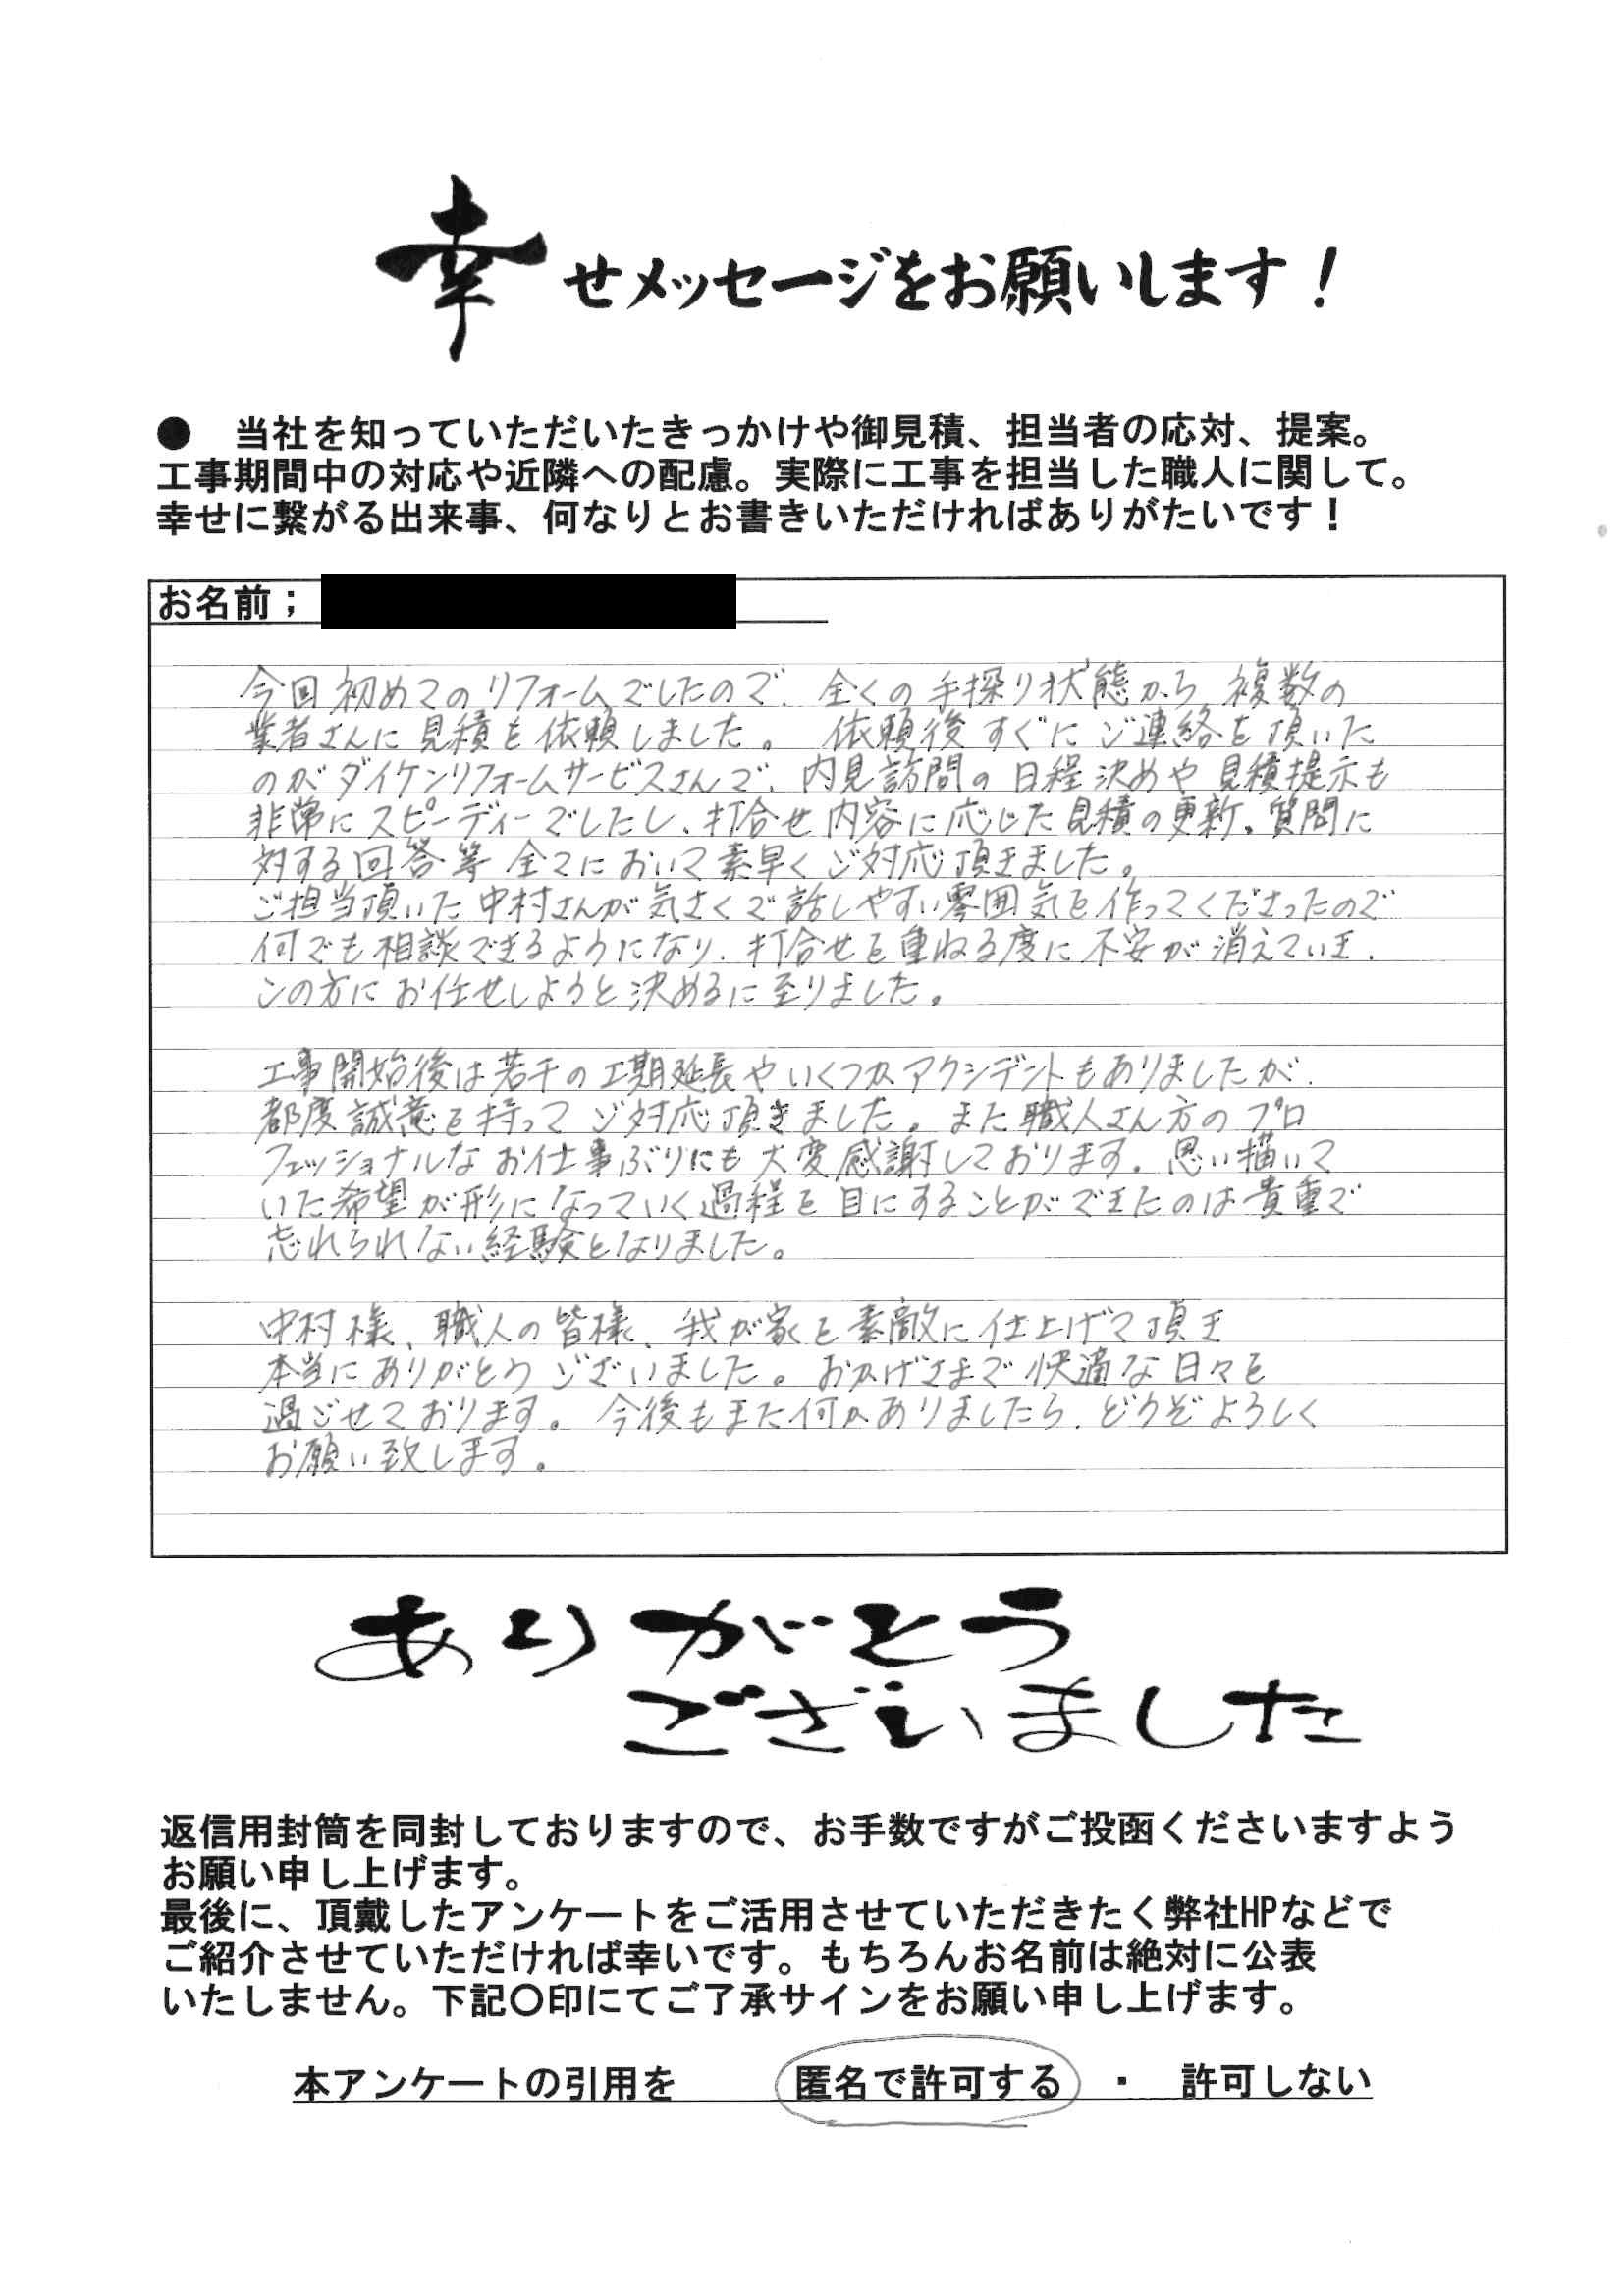 幸せメッセージをお願いします！
●　当社を知っていただいたきっかけや御見積、担当者の応対、提案。
工事期間中の対応や近隣への配慮。実際に工事を担当した職人に関して。
幸せに繋がる出来事、何なりとお書きいただければありがたいです！
お名前；
今回初めてのリフォームでしたので、全くの手探り状態から複数の
業者さんに見積を依頼しました。依頼後すぐにご連絡を頂いた
のがダイケンリフォームサービスさんで、内見訪問の日程決めや見積提示も
非常にスピーディーでしたし、打合せ内容に応じた見積の更新、質問に
対する回答等全てにおいて素早くご対応頂きました。
ご担当頂いた中村さんが気さくで話しやすい雰囲気を作ってくださったので
何でも相談できるようになり、打合せを重ねる度に不安が消えていき、
この方にお任せしようと決めるに至りました。
工事開始後は若干の工期延長やいくつかアクシデントもありましたが、
都度誠意を持ってご対応頂きました。また職人さん方のプロ
フェッショナルなお仕事ぶりにも大変感謝しております。思い描いて
いた希望が形になっていく過程を目にすることができたのは貴重で
忘れられない経験となりました。
中村様、職人の皆様、我が家を素敵に仕上げて頂き
本当にありがとうございました。おかげさまで快適な日々を
過ごせております。今後もまた何かありましたら、どうぞよろしく
お願い致します。
ありがとう
ございました
返信用封筒を同封しておりますので、お手数ですがご投函くださいますよう
お願い申し上げます。
最後に、頂戴したアンケートをご活用させていただきたく弊社HPなどで
ご紹介させていただければ幸いです。もちろんお名前は絶対に公表
いたしません。下記〇印にてご了承サインをお願い申し上げます。
本アンケートの引用を　匿名で許可する　・　許可しない